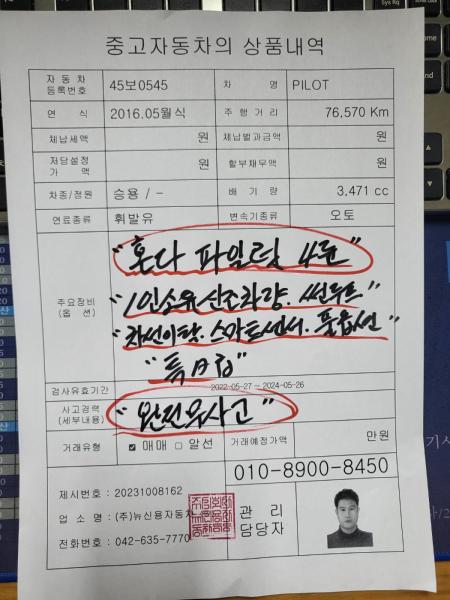 중고자동차의 상품내역
자동차 등록번호 45보0545 차 명 PILOT
연 식 2016.05월식 주행거리 76,570 Km
체납세액 원 체납벌과금액 원
저당설정 가 액 원 할부채무액 원
차종/정원 승용 / - 배 기 량 3,471 cc
연료종류 휘발유 변속기종류 오토
주요장비 (옵 션)
"혼다 파일럿 4륜"
"1인소유.신조차량.썬루프"
"차선이탈.스마트센서.풀옵션"
"특A급"
검사유효기간 2022-05-27 ~ 2024-05-26
사고경력 (세부내용) "완전무사고"
거래유형 ☑ 매매 □ 알선 거래예정가액 만원
010-8900-8450
제시번호 : 20231008162
업 소 명 : (주)뉴신용자동차
전화번호 : 042-635-7770
관 리
담당자